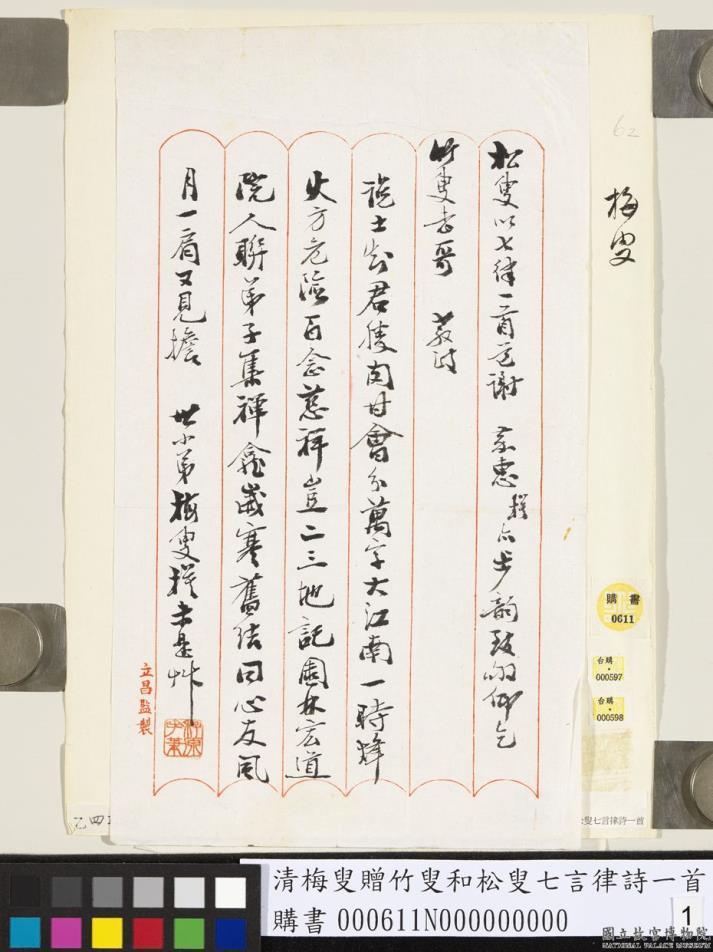 松叟以七律一首
謝
惠
步韻致
仰乞
竹叟
君
甘會分萬字大江南一時烽
火方危險百念慈祥豈二三地託園林宏道
院人聯弟子集禪龕歲寒舊結同心友風
月一肩又見擔
世小弟梅叟
未是艸
立昌監製
62
梅叟
購書
0611
台購
000597
台購
000598
乙四
叟七言律詩一首
清梅叟贈竹叟和松叟七言律詩一首
購書 000611N000000000
1
國立故宮博物院
NATIONAL PALACE MUSEUM